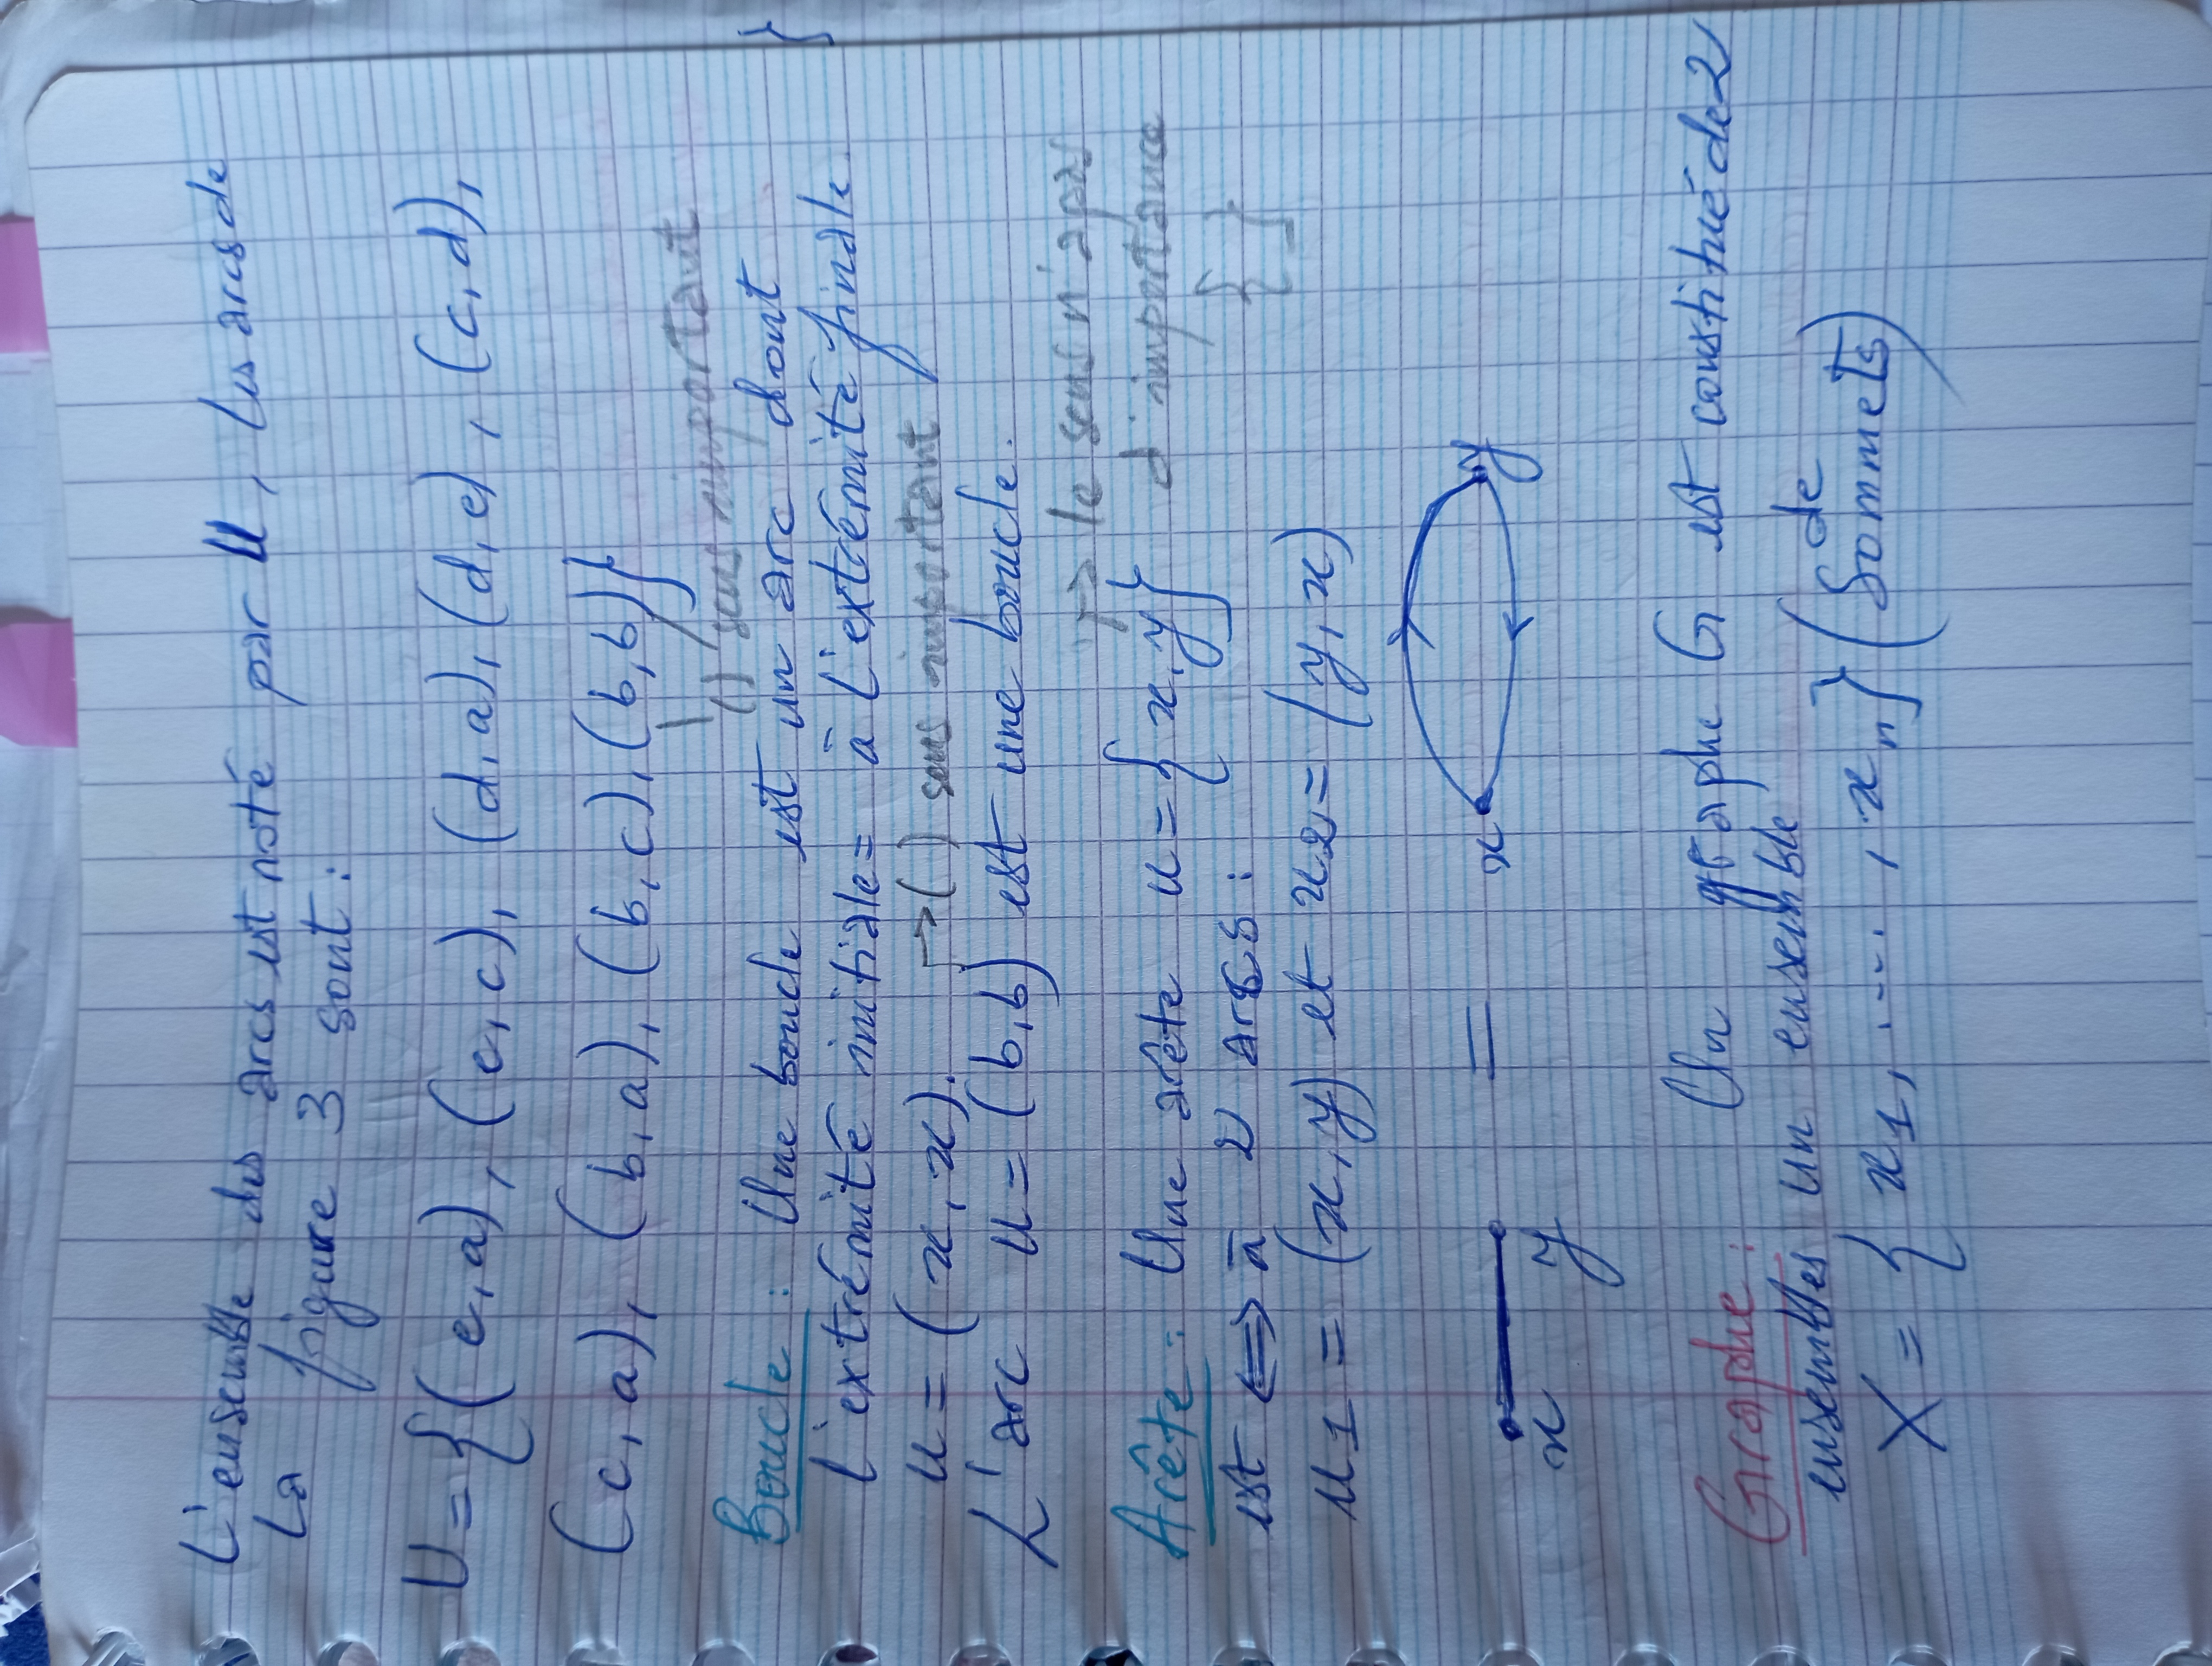 L'ensemble des arcs est noté par U, les arcs de
la figure 3 sont :
U = {(e,a), (e,c), (d,a), (d,e), (c,d),
(c,a), (b,a), (b,c), (b,b)}
() sens important
Boucle : Une boucle est un arc dont
l'extrémité initiale = à l'extrémité finale.
u = (x,x). → ( ) sens important
L'arc u = (b,b) est une boucle.
→ le sens n'a pas
Arête : Une arête u = {x,y} d'importance
est ⟺ à 2 arcs : { }
u1 = (x,y) et x2 = (y,x)
x y = x y
Graphe : Un graphe G est constitué de 2
ensembles un ensemble de
X = {x1, ...., xn} (Sommets)